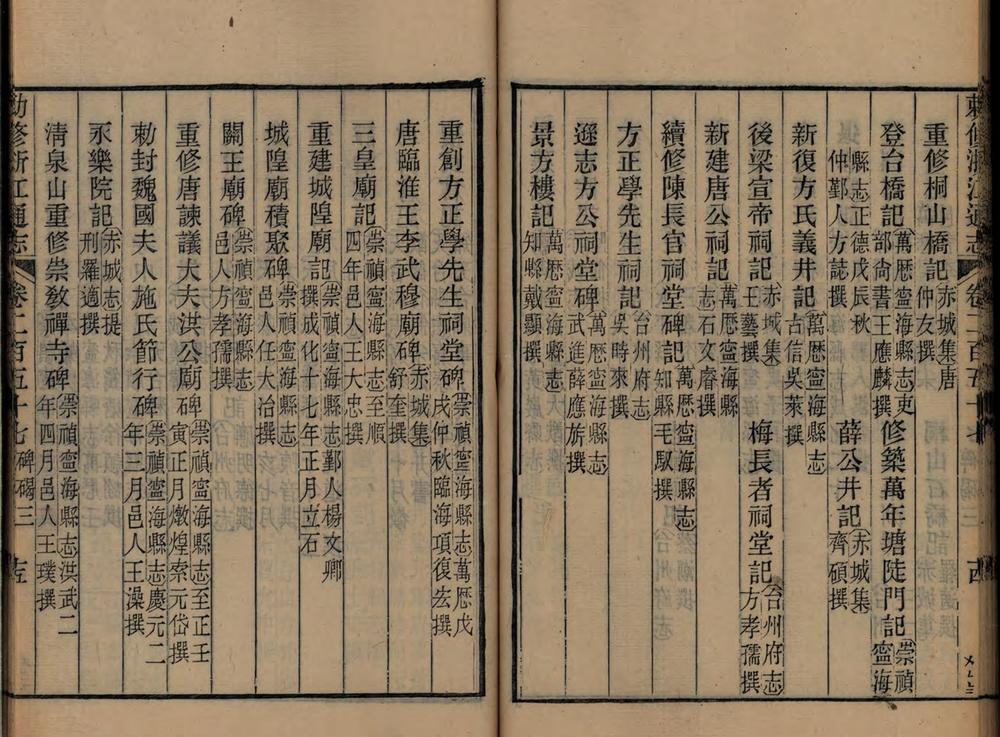 敕修浙江通志 卷二百五十七
重修桐山橋記赤城集唐仲友撰
登台橋記萬歷寧海縣志吏部尚書王應麟撰 修築萬年塘陡門記崇禎寧海
縣志正德戊辰秋仲鄞人方誌撰 薛公井記赤城集齊碩撰
新復方氏義井記萬歷寧海縣志古信吳萊撰
後梁宣帝祠記赤城集王藝撰 梅長者祠堂記台州府志方孝孺撰
新建唐公祠記萬歷寧海縣志石文睿撰
續修陳長官祠堂碑記萬歷寧海縣志知縣毛馭撰
方正學先生祠記台州府志吳時來撰
遜志方公祠堂碑萬歷寧海縣志武進薛應旂撰
景方樓記萬歷寧海縣志知縣戴顯撰
重創方正學先生祠堂碑崇禎寧海縣志萬歷戊戌仲秋臨海項復宏撰
唐臨淮王李武穆廟碑赤城集舒奎撰
三皇廟記崇禎寧海縣志至順四年邑人王大忠撰
重建城隍廟記崇禎寧海縣志鄞人楊文卿撰成化十七年正月立石
城隍廟積聚碑崇禎寧海縣志邑人任大冶撰
關王廟碑崇禎寧海縣志邑人方孝孺撰
重修唐諫議大夫洪公廟碑崇禎寧海縣志至正壬寅正月燉煌索元岱撰
勅封魏國夫人施氏節行碑崇禎寧海縣志慶元二年三月邑人王澡撰
永樂院記赤城志提刑羅適撰
淸泉山重修崇敎禪寺碑崇禎寧海縣志洪武二年四月邑人王璞撰
勅修浙江通志 卷二百五十七 碑碣三